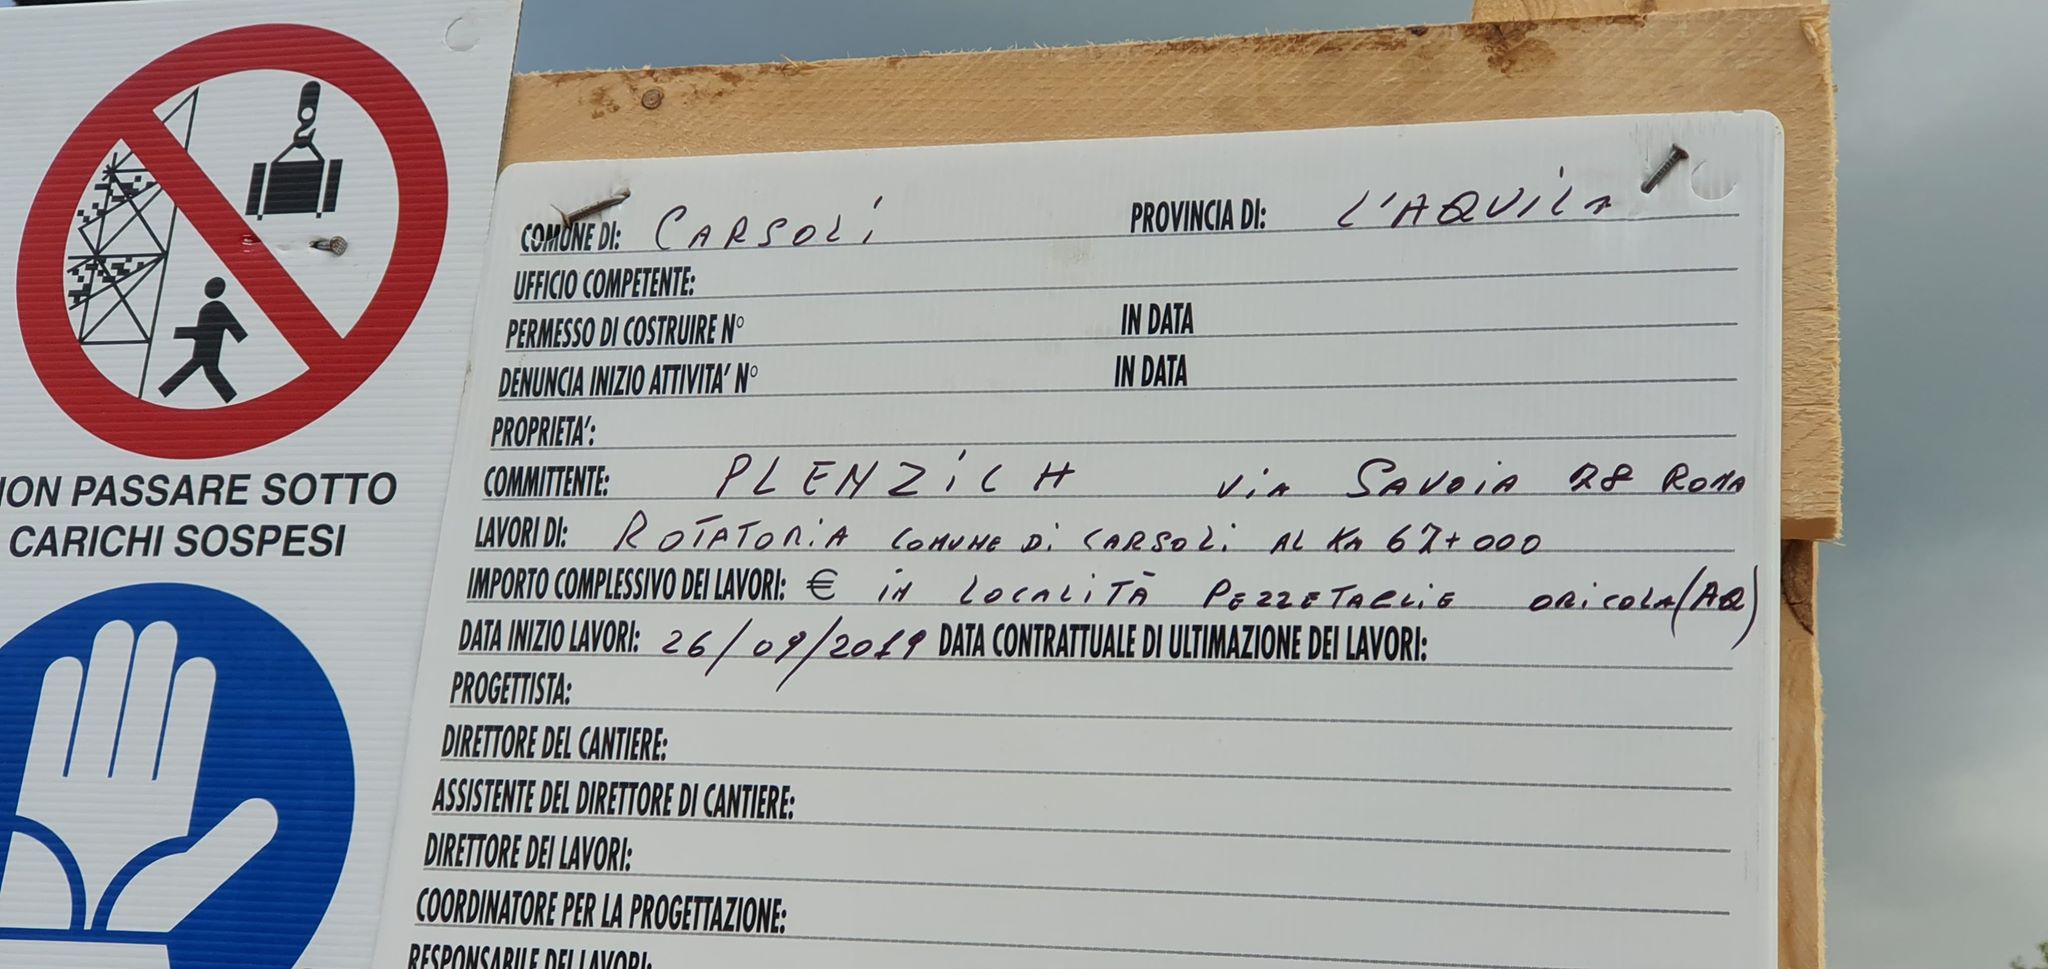 NON PASSARE SOTTO
CARICHI SOSPESI
COMUNE DI: CARSOLI PROVINCIA DI: L'AQUILA
UFFICIO COMPETENTE:
PERMESSO DI COSTRUIRE N° IN DATA
DENUNCIA INIZIO ATTIVITA' N° IN DATA
PROPRIETA':
COMMITTENTE: PLENZICH VIA SAVOIA 28 ROMA
LAVORI DI: ROTATORIA COMUNE DI CARSOLI AL KM 67+000
IMPORTO COMPLESSIVO DEI LAVORI: € IN LOCALITÀ PEZZETAGLIE ORICOLA (AQ)
DATA INIZIO LAVORI: 26/09/2019 DATA CONTRATTUALE DI ULTIMAZIONE DEI LAVORI:
PROGETTISTA:
DIRETTORE DEL CANTIERE:
ASSISTENTE DEL DIRETTORE DI CANTIERE:
DIRETTORE DEI LAVORI:
COORDINATORE PER LA PROGETTAZIONE:
RESPONSABILE DEI LAVORI: